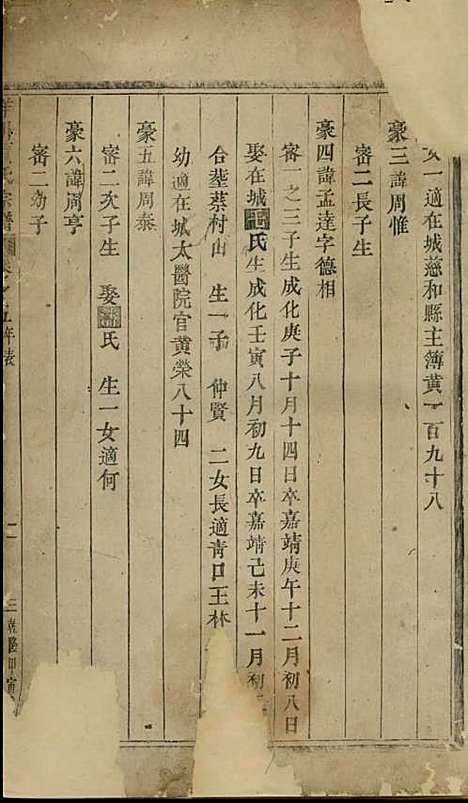 女一適在城慈和縣主簿黃一百九十八
豪三諱周惟
審二長子生
豪四諱孟達字德相
審一之三子生成化庚子十月十四日卒嘉靖庚午十二月初八日
娶在城氏生成化壬寅八月初九日卒嘉靖己未十一月初
合塟蔡村山 生一子 仲賢 二女長適青口王林
幼適在城太醫院官黃榮八十四
豪五諱周泰
審二次子生 娶氏 生一女適何
豪六諱周亨
審二幼子
氏宗譜 五年表 二